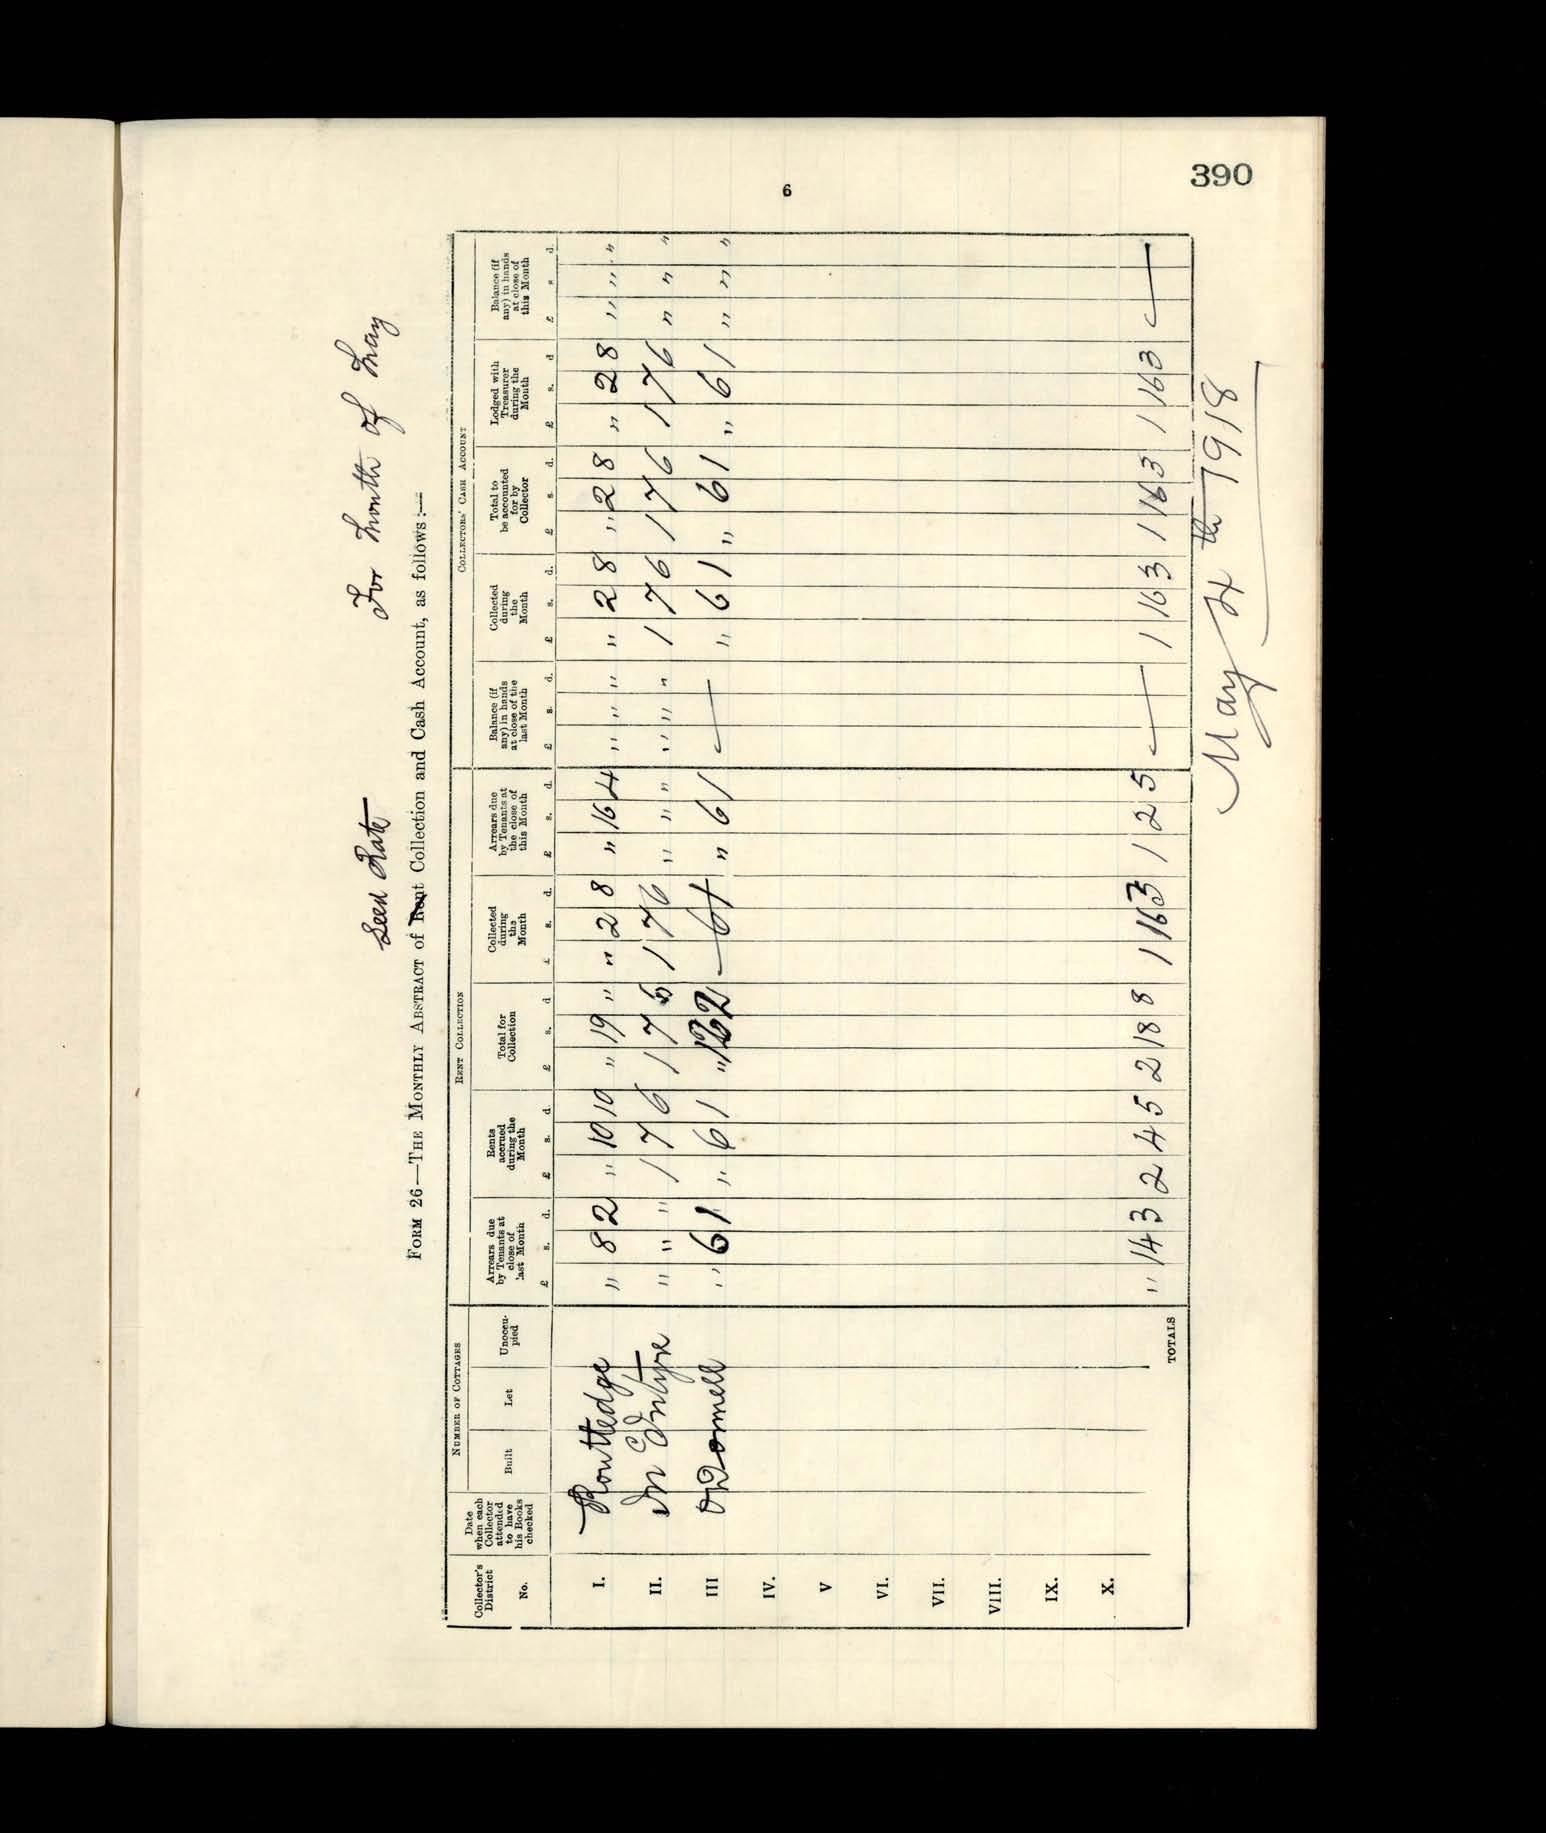 390
6
Seed Rate For Month of May
FORM 26—THE MONTHLY ABSTRACT of Rent Collection and Cash Account, as follows:—
NUMBER OF COTTAGES RENT COLLECTION COLLECTORS' CASH ACCOUNT
Collector's District No. Date when each Collector attended to have his Books checked Built Let Unoccupied Arrears due by Tenants at close of last Month Rents accrued during the Month Total for Collection Collected during the Month Arrears due by Tenants at the close of this Month Balance (if any) in hands at close of the last Month Collected during the Month Total to be accounted for by Collector Lodged with Treasurer during the Month Balance (if any) in hands at close of this Month
£ s. d. £ s. d. £ s. d. £ s. d. £ s. d. £ s. d. £ s. d. £ s. d. £ s. d. £ s. d.
I. Routtedge " 8 2 " 10 10 " 19 " " 2 8 " 16 4 " " " " 2 8 " 2 8 " 2 8 " " "
II. McIntyre " " " 1 7 6 1 7 6 1 7 6 " " " " " " 1 7 6 1 7 6 1 7 6 " " "
III O'Donnell " 6 1 " 6 1 " 12 2 — 6 1 " 6 1 — " 6 1 " 6 1 " 6 1 " " "
IV.
V
VI.
VII.
VIII.
IX.
X.
TOTALS " 14 3 2 4 5 2 18 8 1 16 3 1 2 5 — 1 16 3 1 16 3 1 16 3 —
May 4th 1918